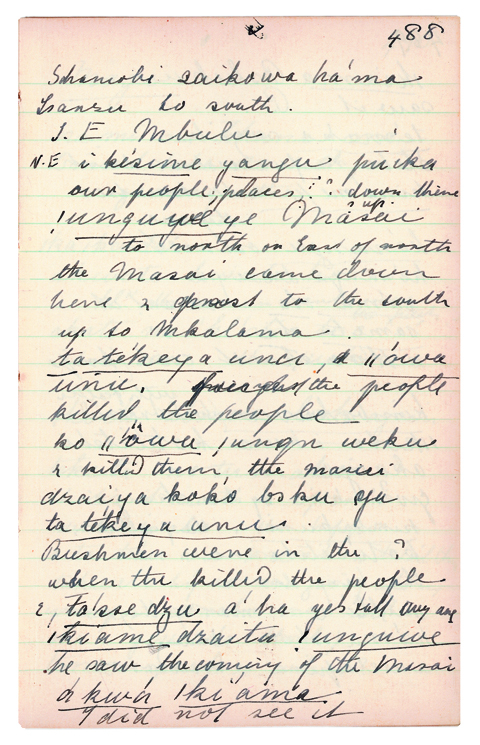 488
saikowa ha'ma
Isanzu to south.
S. E Mbulu
N.E i kesime yangu púcka
our people, places, ? down there
!unguwe ye Māsai
to north on East of north
the Masai come down
here & to the south
up to Mkalama.
ta tékeya uncu, ǁ'owa
unu. the people
killed the people
ko ǁ'ówa, !ungu weku
& killed them, the masai
dzaiya kokó bsku ya
ta tékeya unu.
Bushmen were in the ?
when the killed the people
ta'sse dzu a' ha yes tall they are
ǀkiame dzaitu !unguwe
he saw the coming of the Masai
á kwá ǀki'ama
I did not see it